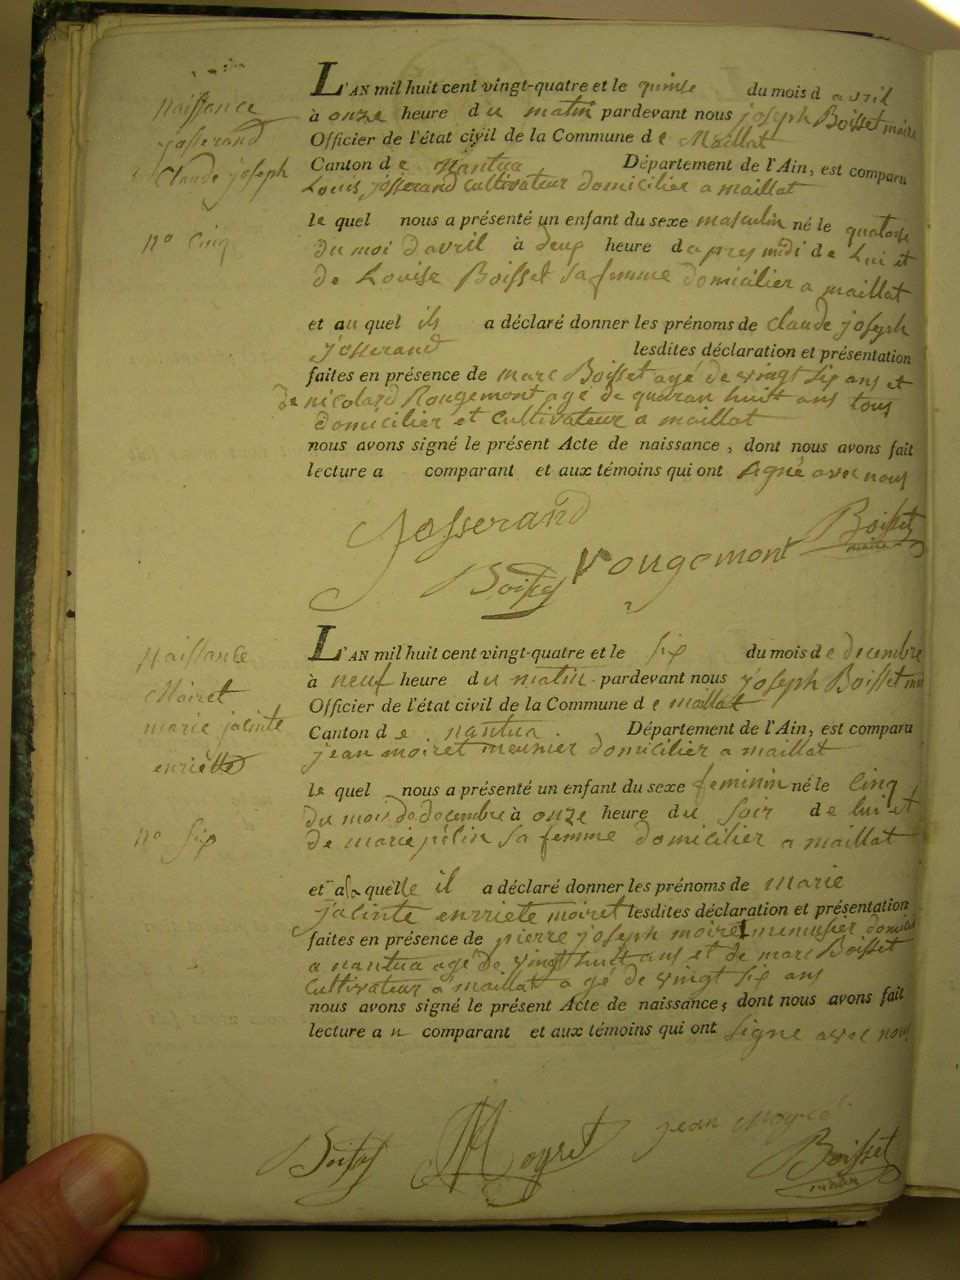 naissance
josserand
Claude joseph
no Cinq
L'AN mil huit cent vingt-quatre et le quinse du mois d avril
à onze heure du matin pardevant nous joseph Boisset maire
Officier de l'état civil de la Commune de Maillat
Canton de nantua Département de l'Ain, est comparu
Louis josserand cultivateur domicilier a maillat
le quel nous a présenté un enfant du sexe masculin né le quatorse
du moi d'avril à deux heure d apres midi de Lui et
de Louise Boisset sa femme domicilier a maillat
et au quel ils a déclaré donner les prénoms de claude joseph
josserand lesdites déclaration et présentation
faites en présence de marc Boisset agé de vingt six ans et
de nicolard Rougemont agé de quaran huitt ans tous
domicilier et cultivateur a maillat
nous avons signé le présent Acte de naissance, dont nous avons fait
lecture a comparant et aux témoins qui ont signé avec nous
Josserand
Boisset
maire
Boisset Rougemont
naissance
Moiret
marie jacinte
enriette
no six
L'AN mil huit cent vingt-quatre et le six du mois de decembre
à neuf heure du matin pardevant nous joseph Boisset
Officier de l'état civil de la Commune de maillat
Canton de nantua. Département de l'Ain, est comparu
jean moiret meunier domicilier a maillat
le quel nous a présenté un enfant du sexe feminin né le Cinq
du mois de decembre à onze heure du soir de lui et
de marie sa femme domicilier a maillat
et a la quelle il a déclaré donner les prénoms de Marie
jacinte enriete moiret lesdites déclaration et présentation
faites en présence de pierre joseph moiret menusier
a nantua agé de vingt huitt ans et de marc Boisset
Cultivateur a maillat agé de vingt six ans
nous avons signé le présent Acte de naissance, dont nous avons fait
lecture a u comparant et aux témoins qui ont signé avec nous
Boisset Moyret jean Moyret
Boisset